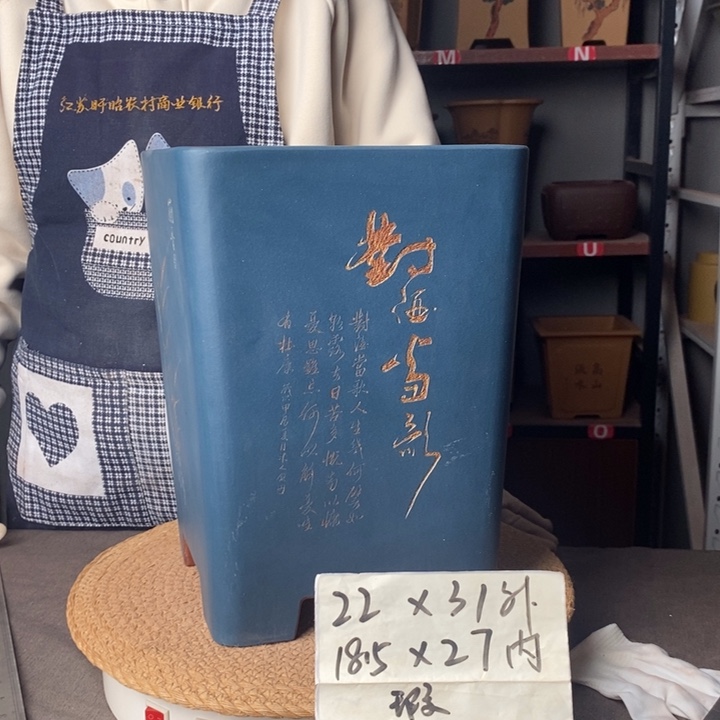 江苏盱眙农村商业银行
country
M
N
U
O
對酒当歌
對酒當歌人生幾何譬如
朝露去日苦多慨當以慷
憂思難忘何以解憂唯
有杜康
22×31外
18.5×27内
瑕